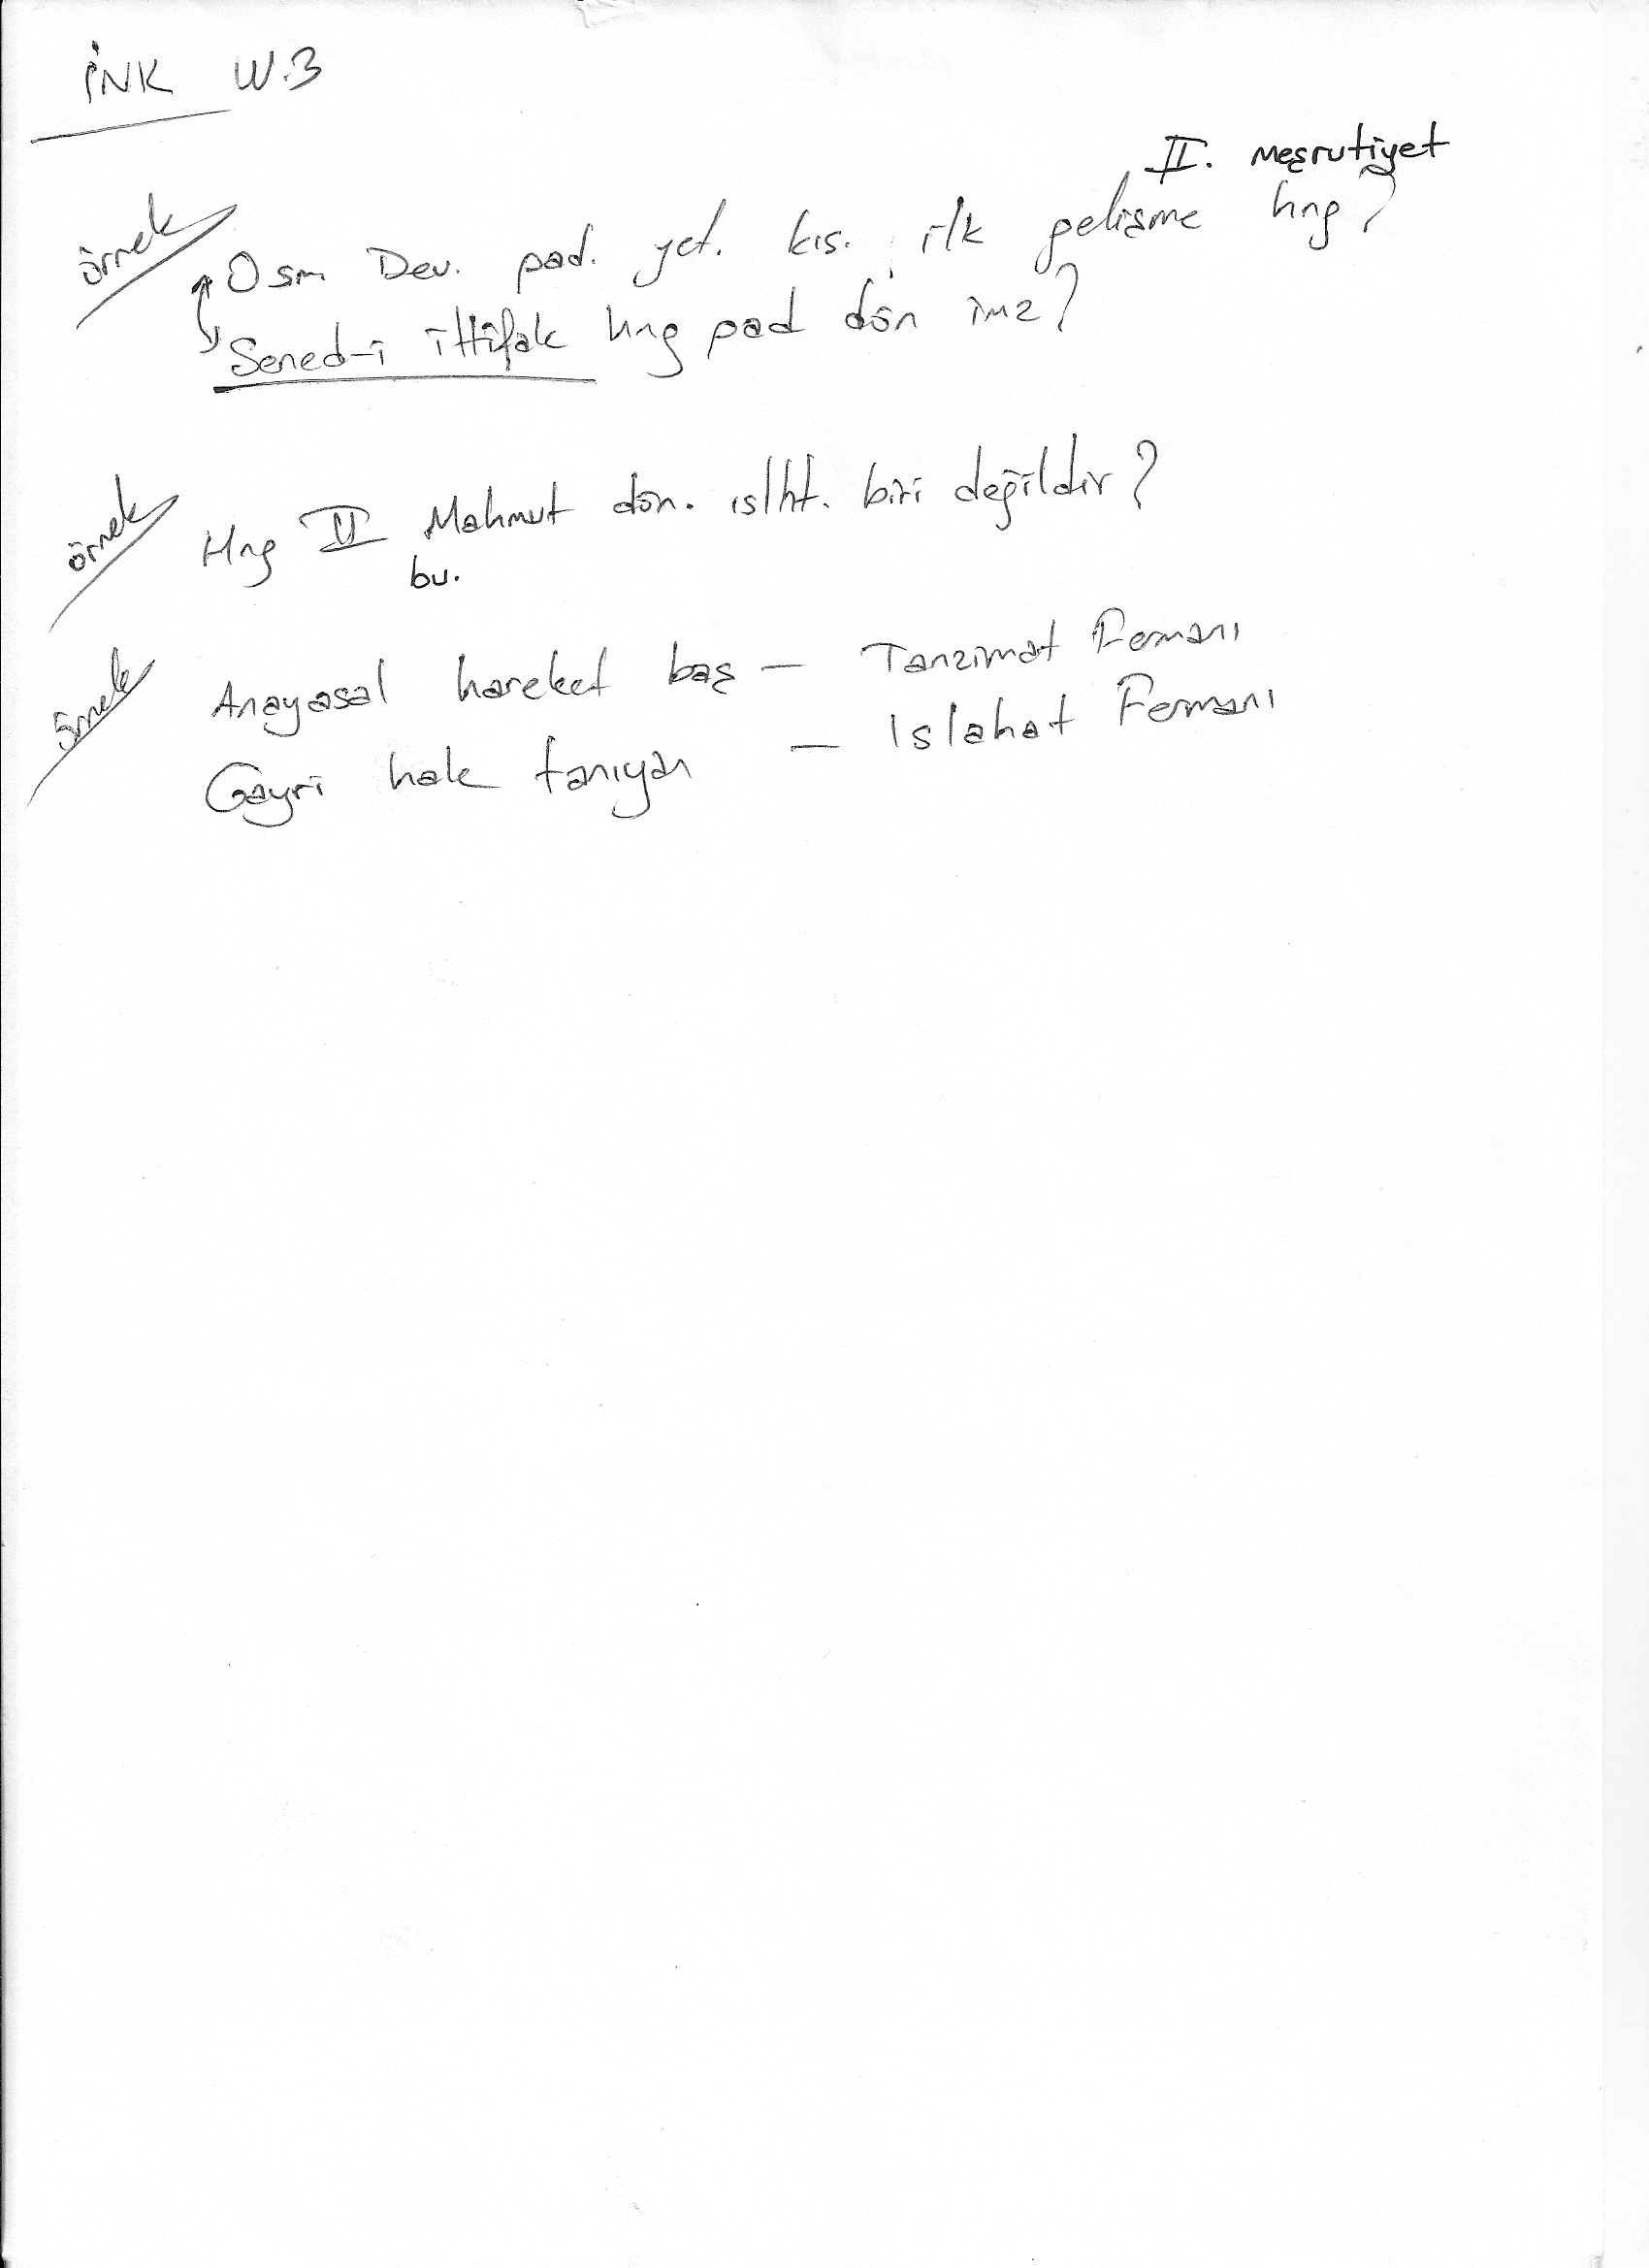 İNK W.3
II. meşrutiyet
örnek Osm Dev. pad. yet. kıs. ilk gelişme hng?
Sened-i ittifak hng pad dön imz?
örnek Hng II Mahmut dön. ıslht. biri değildir?
bu.
örnek Anayasal hareket baş — Tanzimat Fermanı
Gayri hak tanıyan — Islahat Fermanı